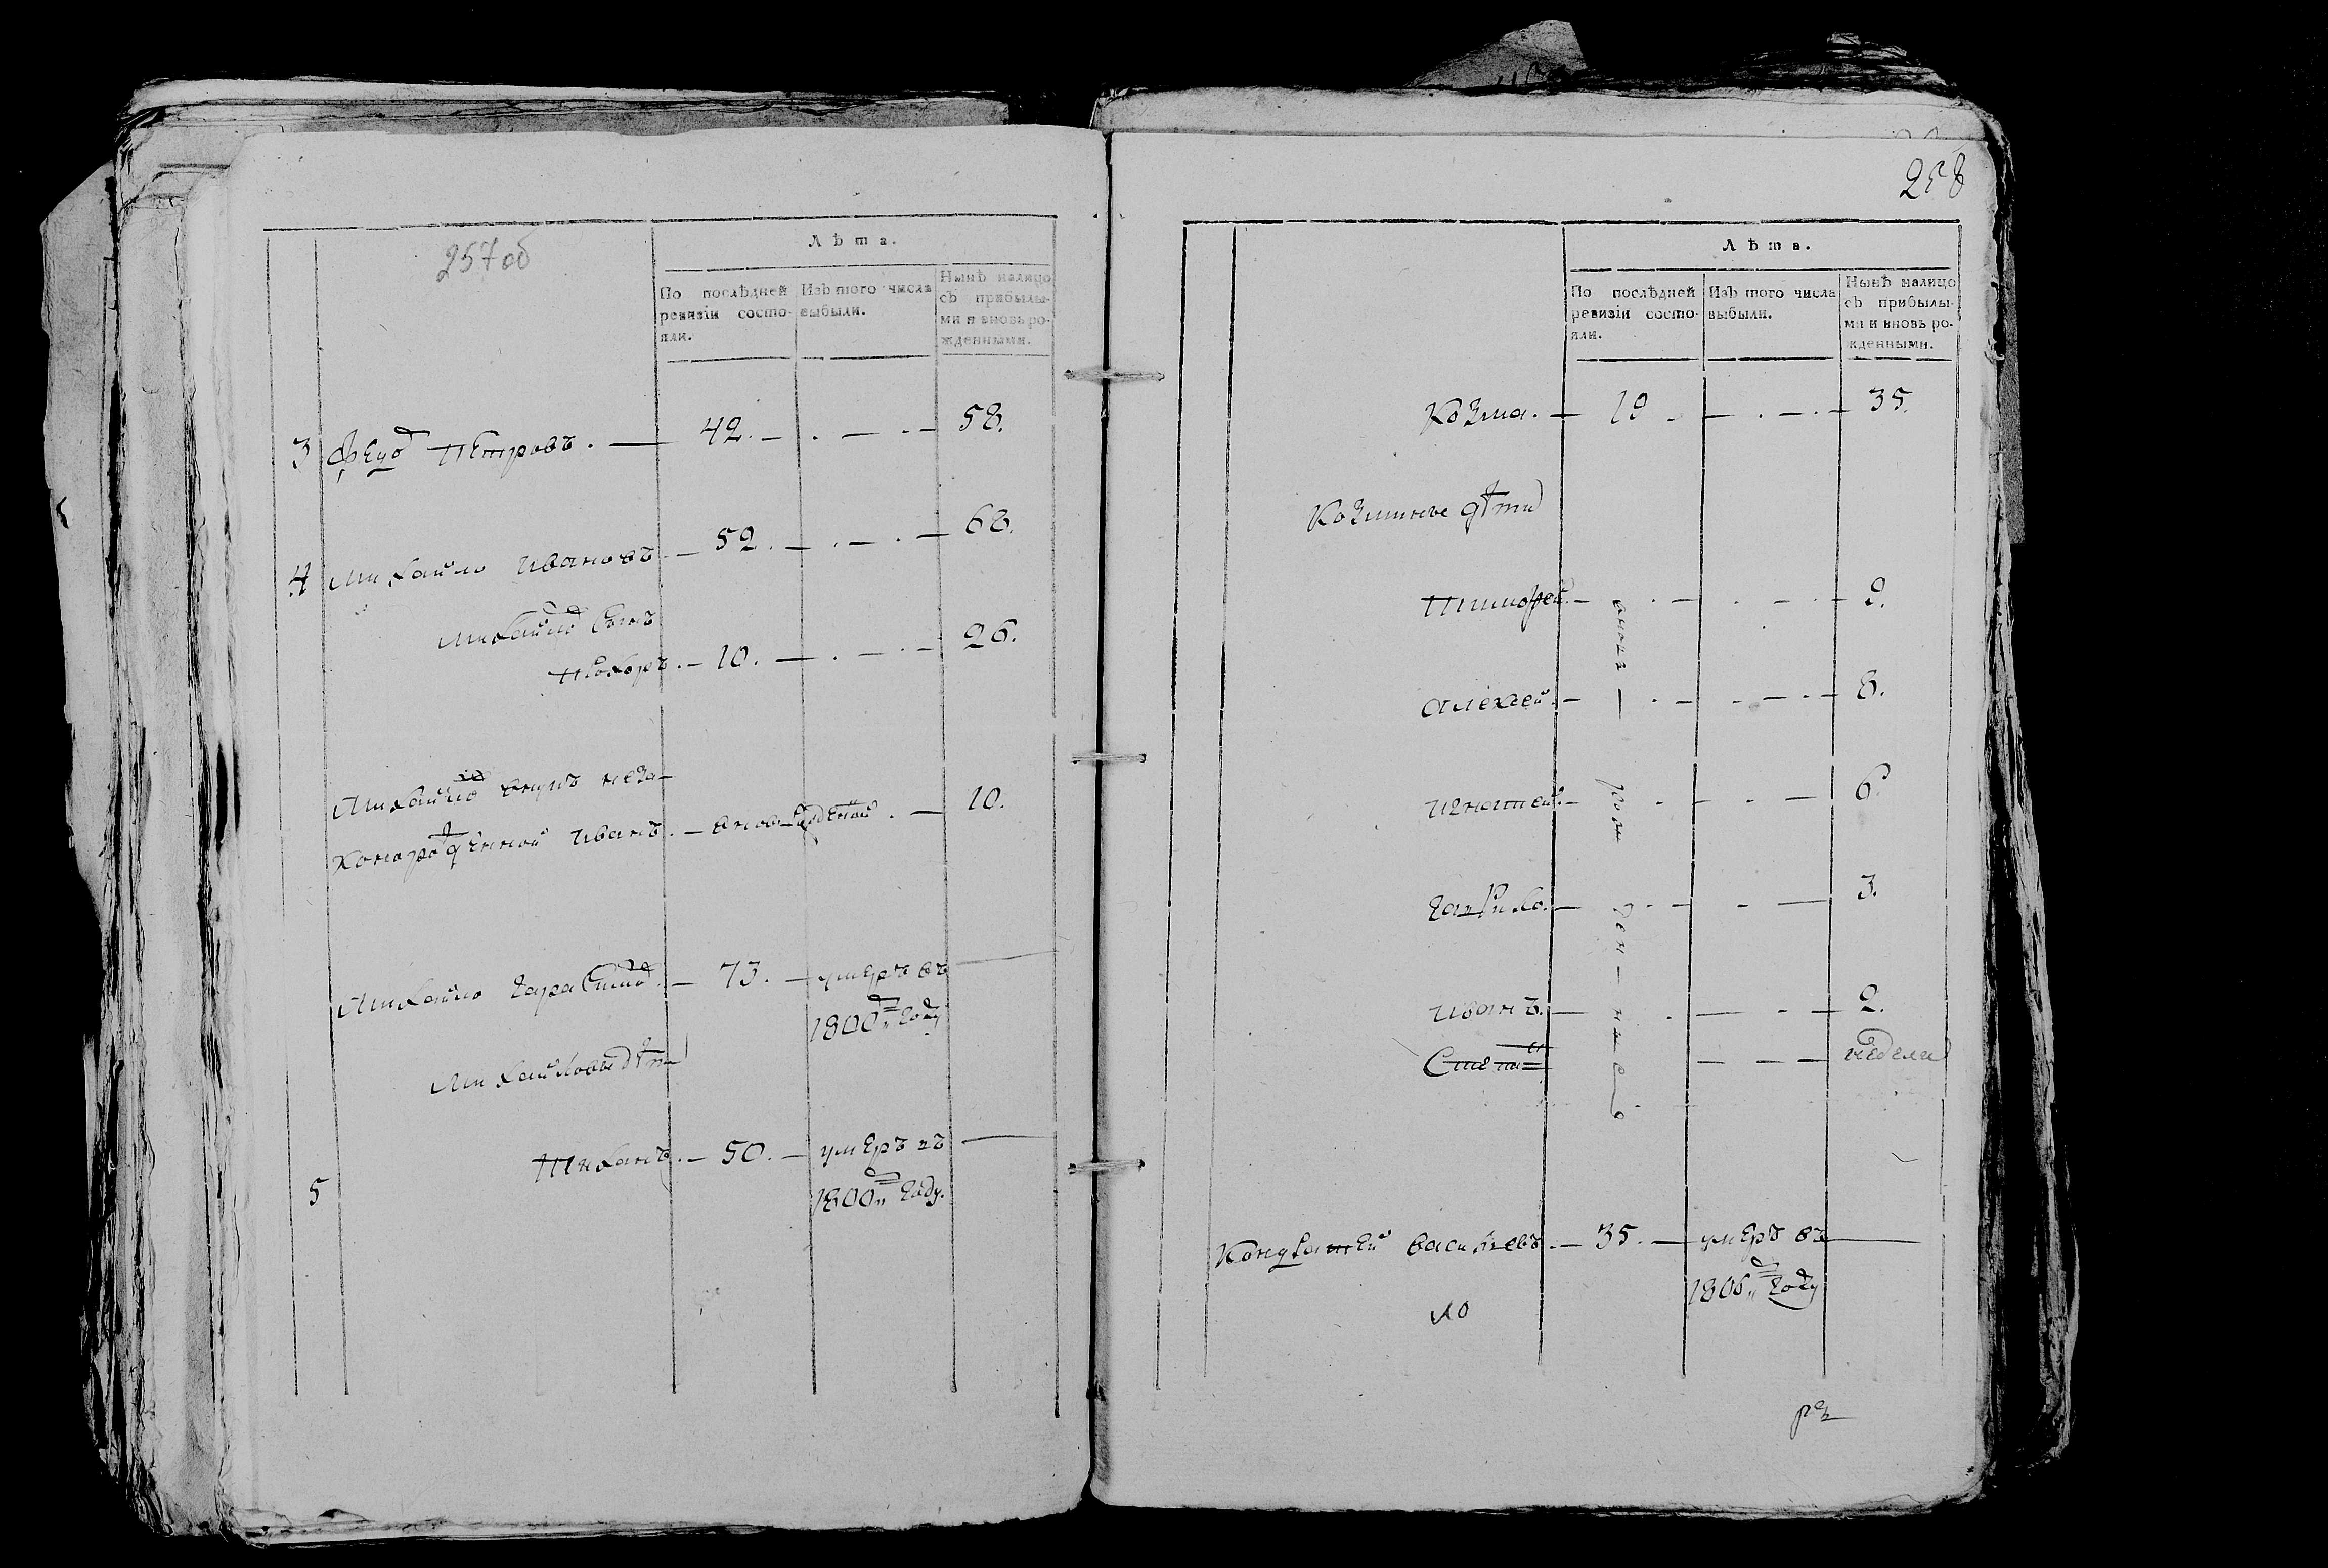 257об
Лѣта.
По послѣдней ревизіи состояли.
Изъ того числа выбыли.
Нынѣ налицо съ прибылыми и вновь рожденными.
3 Федо Петровъ. — 42. — . — . — 58.
4 Михайло Ивановъ. — 52. — . — . — 68.
Михайлов Сынъ
Прохоръ. — 10. — . — . — 26.
Михайлов внукъ неза-
конорожденной Иванъ. — вновь рожденой. — 10.
Михайло Гарасимов. — 73. — умеръ въ —
1800м году
Михайловы дѣти
5 Тихонъ. — 50. — умеръ въ —
1800м году.
258
Лѣта.
По послѣдней ревизіи состояли.
Изъ того числа выбыли.
Нынѣ налицо съ прибылыми и вновь рожденными.
Козма. — 19 — . — . — 35.
Козмины дѣти
Тимофей. — . — . — 9.
Алексей. — . — . — 8.
Игнатей. — . — . — 6.
Гаврило. — . — . — 3.
Иванъ. — . — . — 2.
Степа — — — недели
вновь — рож ден — ные
Кондратей Васильевъ — 35. — умеръ въ —
1806м году
ло